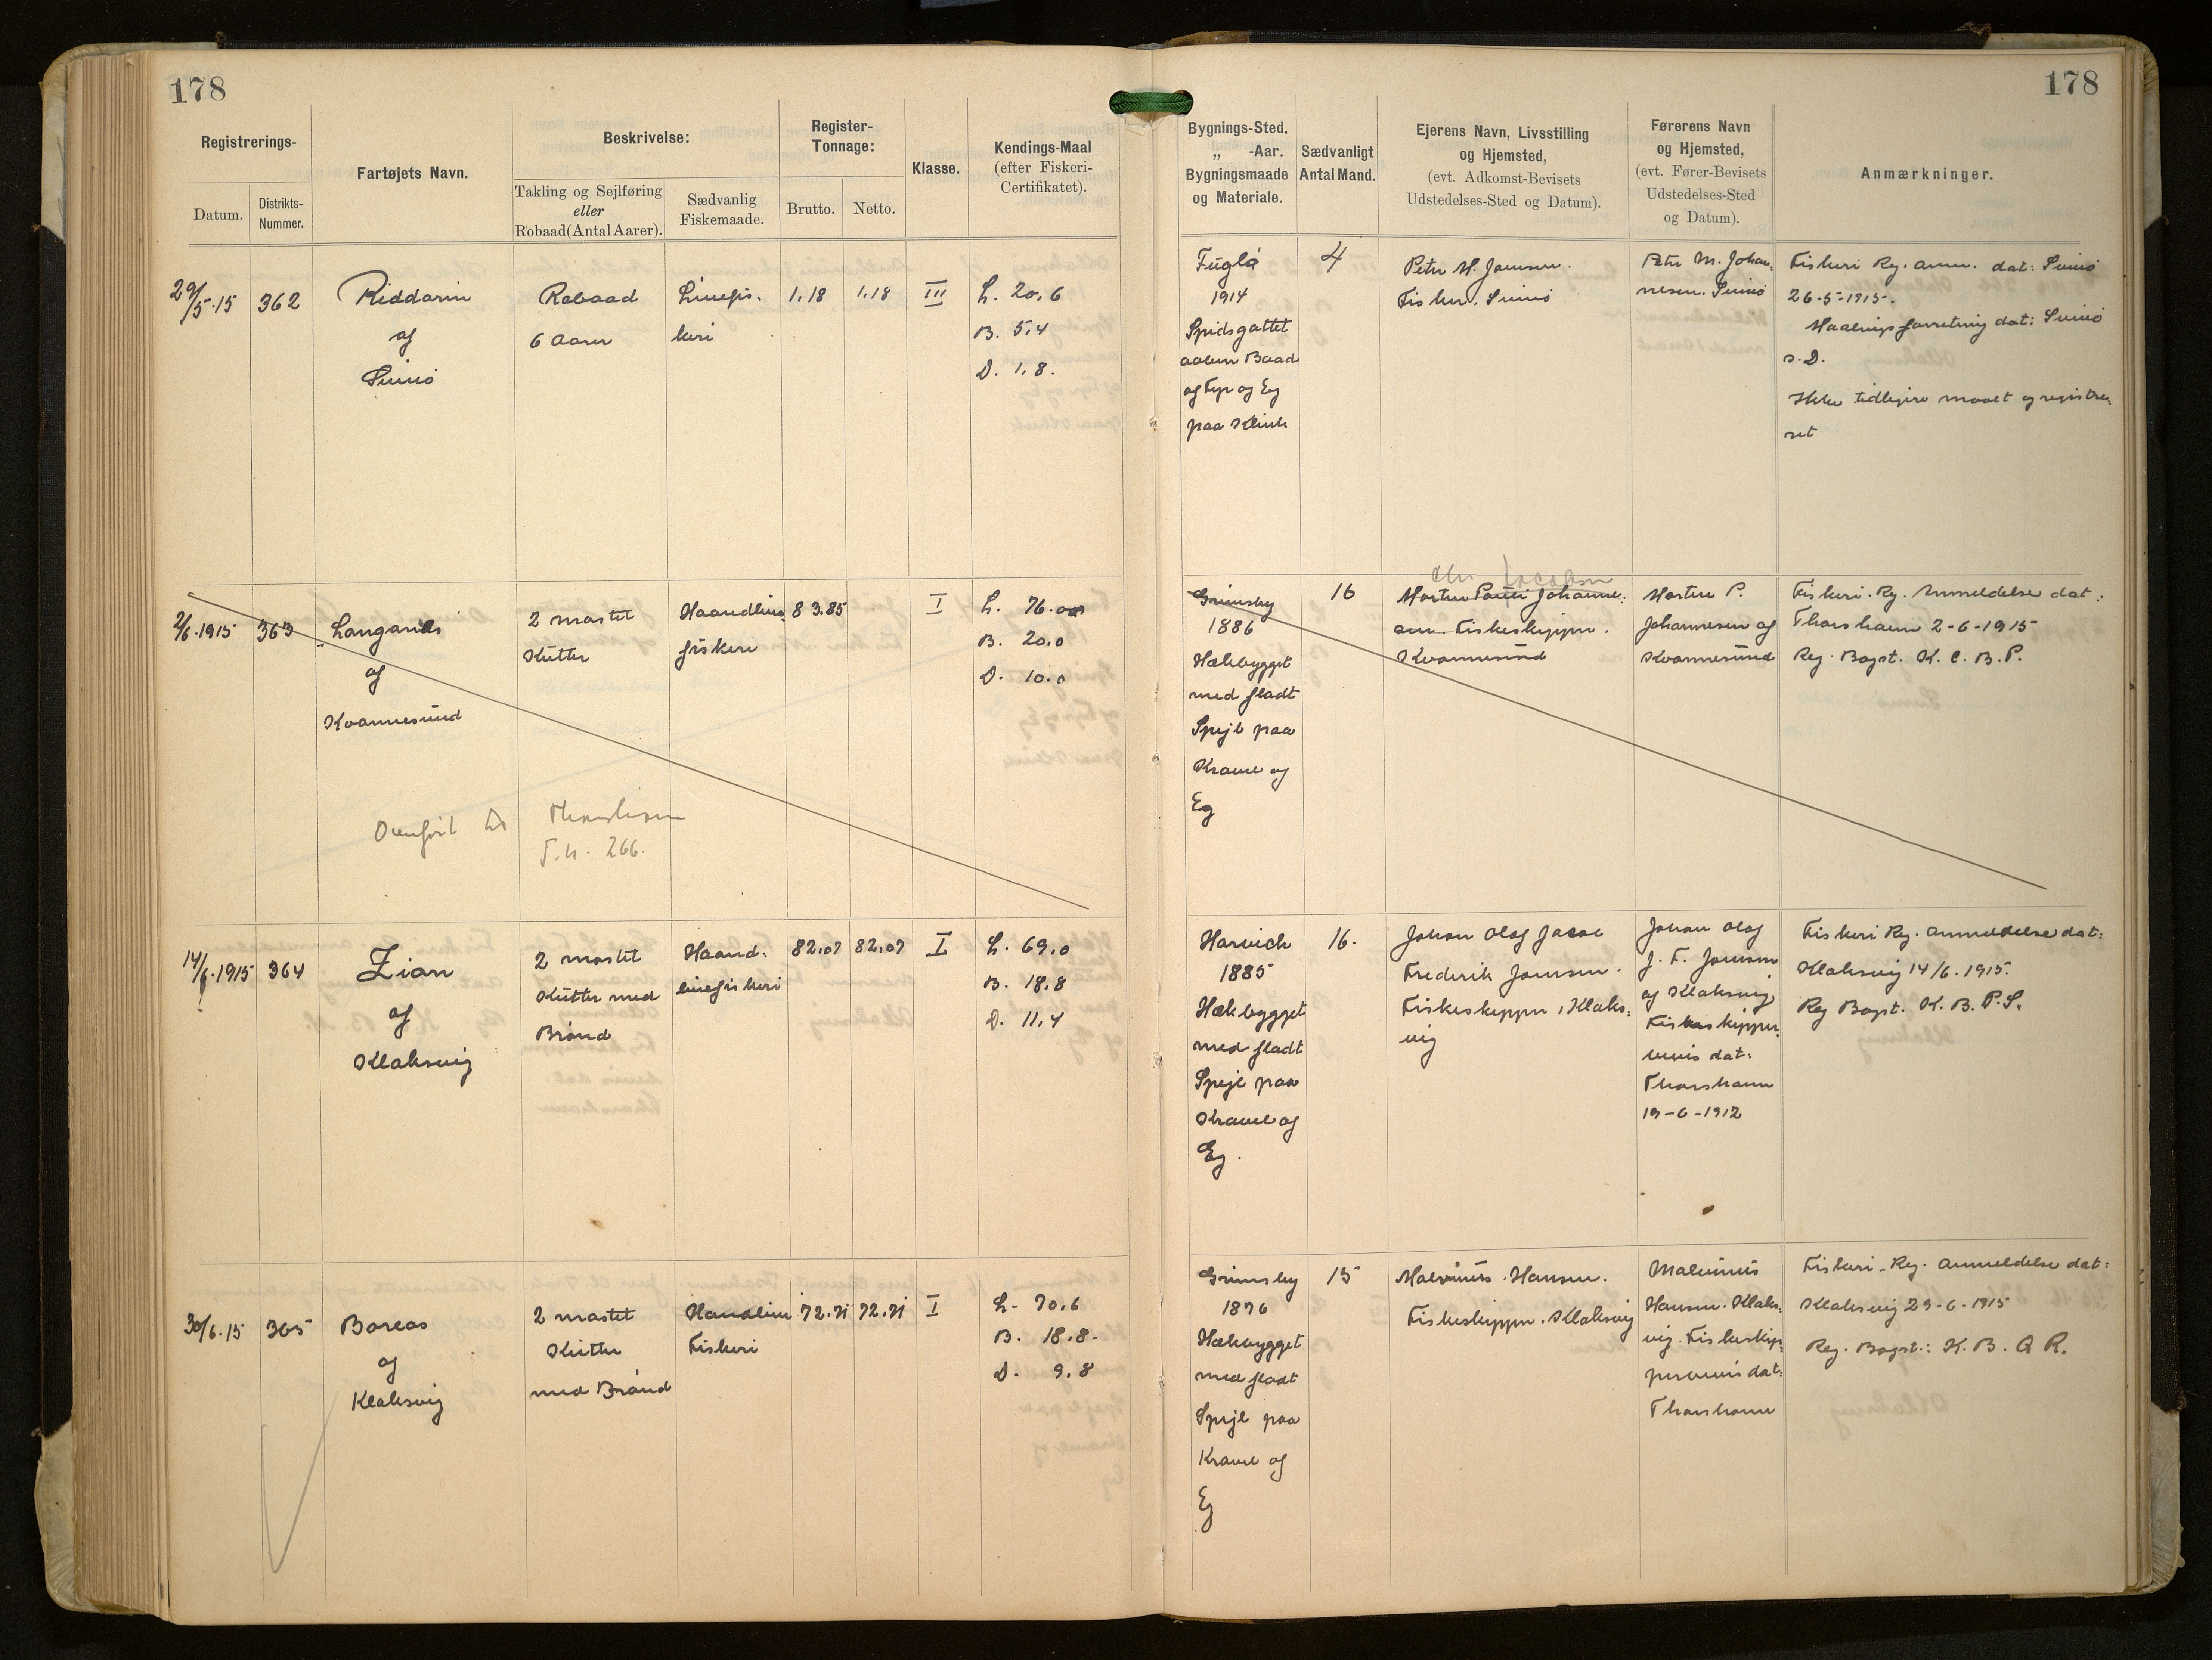 178
178
Registrerings-
Datum.
Distrikts-
Nummer.
Fartøjets Navn.
Beskrivelse:
Takling og Sejlføring
eller
Robaad (Antal Aarer).
Sædvanlig
Fiskemaade.
Register-
Tonnage:
Brutto.
Netto.
Klasse.
Kendings-Maal
(efter Fiskeri-
Certifikatet).
Bygnings-Sted.
„ -Aar.
Bygningsmaade
og Materiale.
Sædvanligt
Antal Mand.
Ejerens Navn, Livsstilling
og Hjemsted,
(evt. Adkomst-Bevisets
Udstedelses-Sted og Datum).
Førerens Navn
og Hjemsted,
(evt. Fører-Bevisets
Udstedelses-Sted
og Datum).
Anmærkninger.
29/5.15
362
Riddarin
af
Svinö
Robaad
6 Aarer
Linefis-
keri
1,18
1,18
III
L. 20,6
B. 5,4
D. 1,8.
Fuglö
1914
Spidsgattet
aaben Baad
af Fyr og Eg
paa Klink
4
Peter M. Joensen.
Fisker. Svinö
Peter M. Johan-
nesen. Svinö
Fiskeri Reg. Anm. dat: Svinö
26-5-1915.
Maalingsforretning dat: Svinö
s.D.
Ikke tidligere maalt og registre-
ret
2/6.1915
363
Langanes
af
Kvannesund
2 mastet
Kutter
Haandline
fiskeri
83.85
I
L. 76.0
B. 20.0
D. 10.0
Overført til Thorshavn
T.n. 266.
Grimsby
1886
Hækbygget
med fladt
Spejl paa
Kravel og
Eg
16
Chr Jacobsen
Morten Peter Johanne-
sen Fiskeskipper.
Kvannesund
Morten P.
Johannesen af
Kvannesund
Fiskeri. Reg. Anmeldelse dat:
Thorshavn 2-6-1915
Reg. Bogst. K. C. B. P.
14/6.1915
364
Zion
af
Klaksvig
2 mastet
Kutter med
Brønd
Haand-
linefiskeri
82.07
82.07
I
L. 69,0
B. 18.8
D. 11,4
Harvich
1885
Hækbygget
med fladt
Spejl paa
Kravel og
Eg.
16.
Johan Olaf Jacob
Frederik Joensen.
Fiskeskipper, Klaks-
vig
Johan Olaf
J. F. Joensen
af Klaksvig
Fiskeskipper
bevis dat:
Thorshavn
19-6-1912
Fiskeri Reg. Anmeldelse dat:
Klaksvig 14/6.1915.
Reg Bogst. K. B. P. S.
30/6.15
365
Boreas
af
Klaksvig
2 mastet
Kutter
med Brønd
Handline
Fiskeri
72.71
72.71
I
L- 70.6
B. 18.8-
D. 9.8
Grimsby
1876
Hækbygget
med fladt
Spejl paa
Kravel og
Eg
15
Malvinus Hansen.
Fiskeskipper. Klaksvig
Malvinus
Hansen. Klaks-
vig. Fiskeskip-
perbevis dat:
Thorshavn
Fiskeri-Reg. Anmeldelse dat:
Klaksvig 29-6-1915
Reg. Bogst.: K. B. Q R.